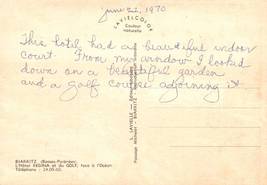 June 22, 1970
LAVIELCOLOR
Couleur
naturelle
This hotel had a beautiful indoor
court. From my window I looked
down on a beautiful garden
and a golf course adjoining it
BIARRITZ (Basses-Pyrénées)
L'Hôtel REGINA et du GOLF, face à l'Océan
Téléphone : 24.09.60.
BIARRITZ